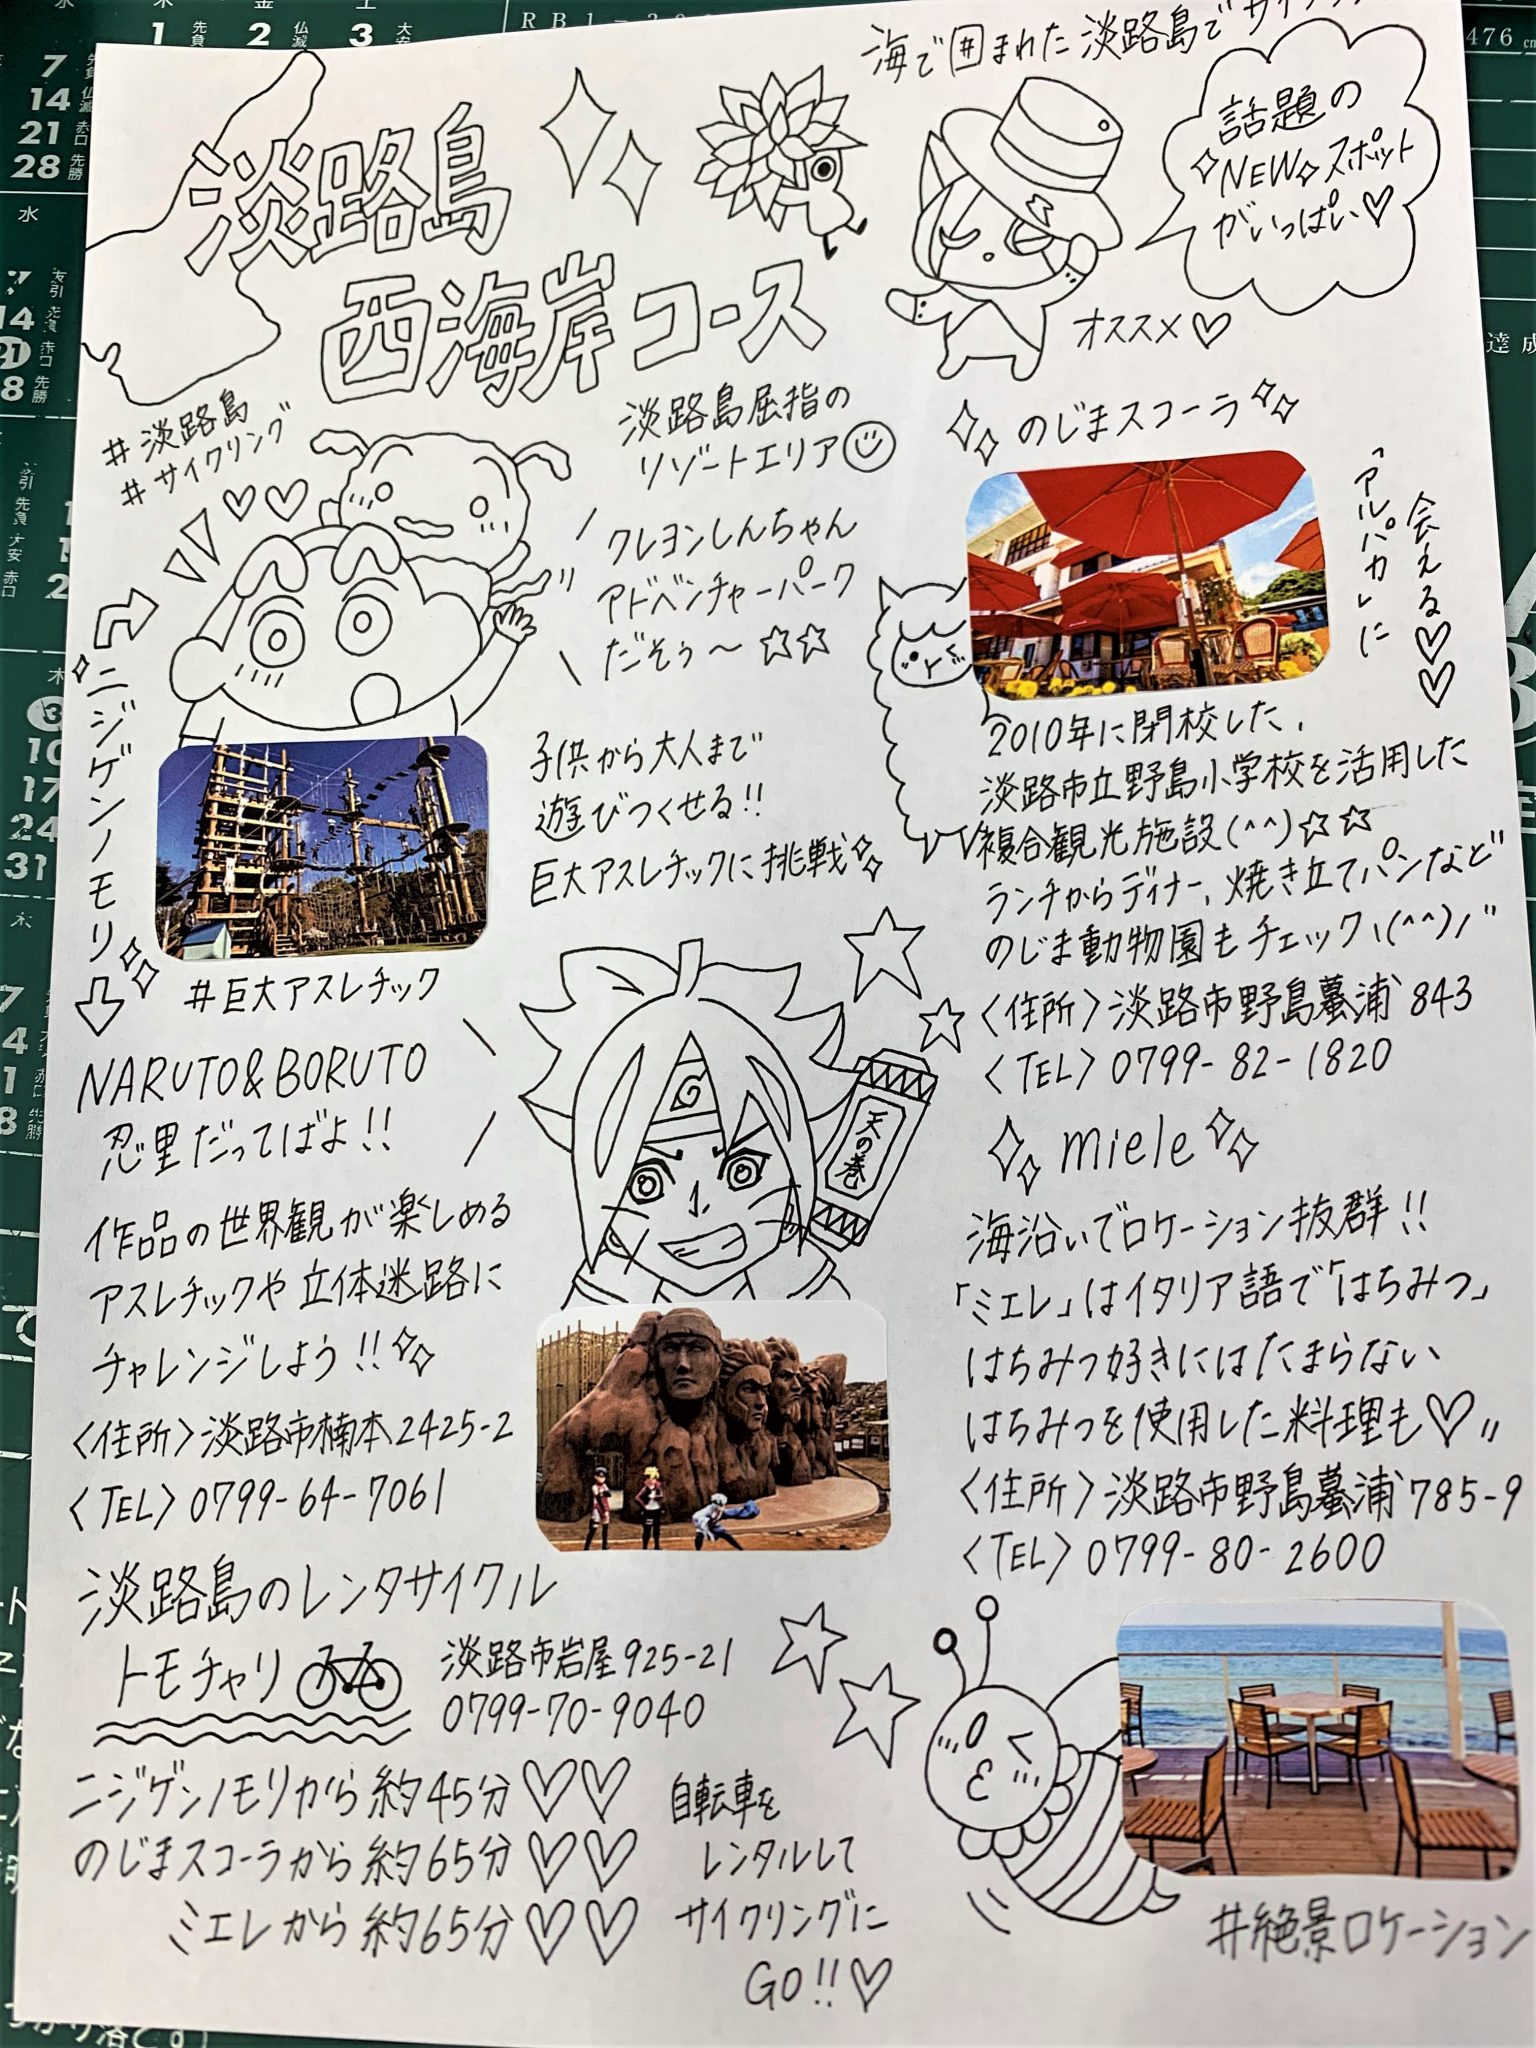 海で囲まれた淡路島で
話題の
NEWスポット
がいっぱい♡
オススメ♡
淡路島
西海岸コース
#淡路島
#サイクリング
淡路島屈指の
リゾートエリア
クレヨンしんちゃん
アドベンチャーパーク
だぞぅ〜☆☆
ニジゲンノモリ
子供から大人まで
遊びつくせる!!
巨大アスレチックに挑戦
#巨大アスレチック
NARUTO&BORUTO
忍里だってばよ!!
天の巻
作品の世界観が楽しめる
アスレチックや立体迷路に
チャレンジしよう!!
<住所>淡路市楠本2425-2
<TEL>0799-64-7061
淡路島のレンタサイクル
トモチャリ
淡路市岩屋925-21
0799-70-9040
ニジゲンノモリから約45分♡♡
のじまスコーラから約65分♡♡
ミエレから約65分♡♡
自転車を
レンタルして
サイクリングに
GO!!♡
のじまスコーラ
「アルパカ」に
会える♡♡
2010年に閉校した、
淡路市立野島小学校を活用した
複合観光施設(^^)☆☆
ランチからディナー、焼き立てパンなど
のじま動物園もチェックヽ(^^)ノ"
<住所>淡路市野島蟇浦843
<TEL>0799-82-1820
miele
海沿いでロケーション抜群!!
「ミエレ」はイタリア語で「はちみつ」
はちみつ好きにはたまらない
はちみつを使用した料理も♡"
<住所>淡路市野島蟇浦785-9
<TEL>0799-80-2600
#絶景ロケーション